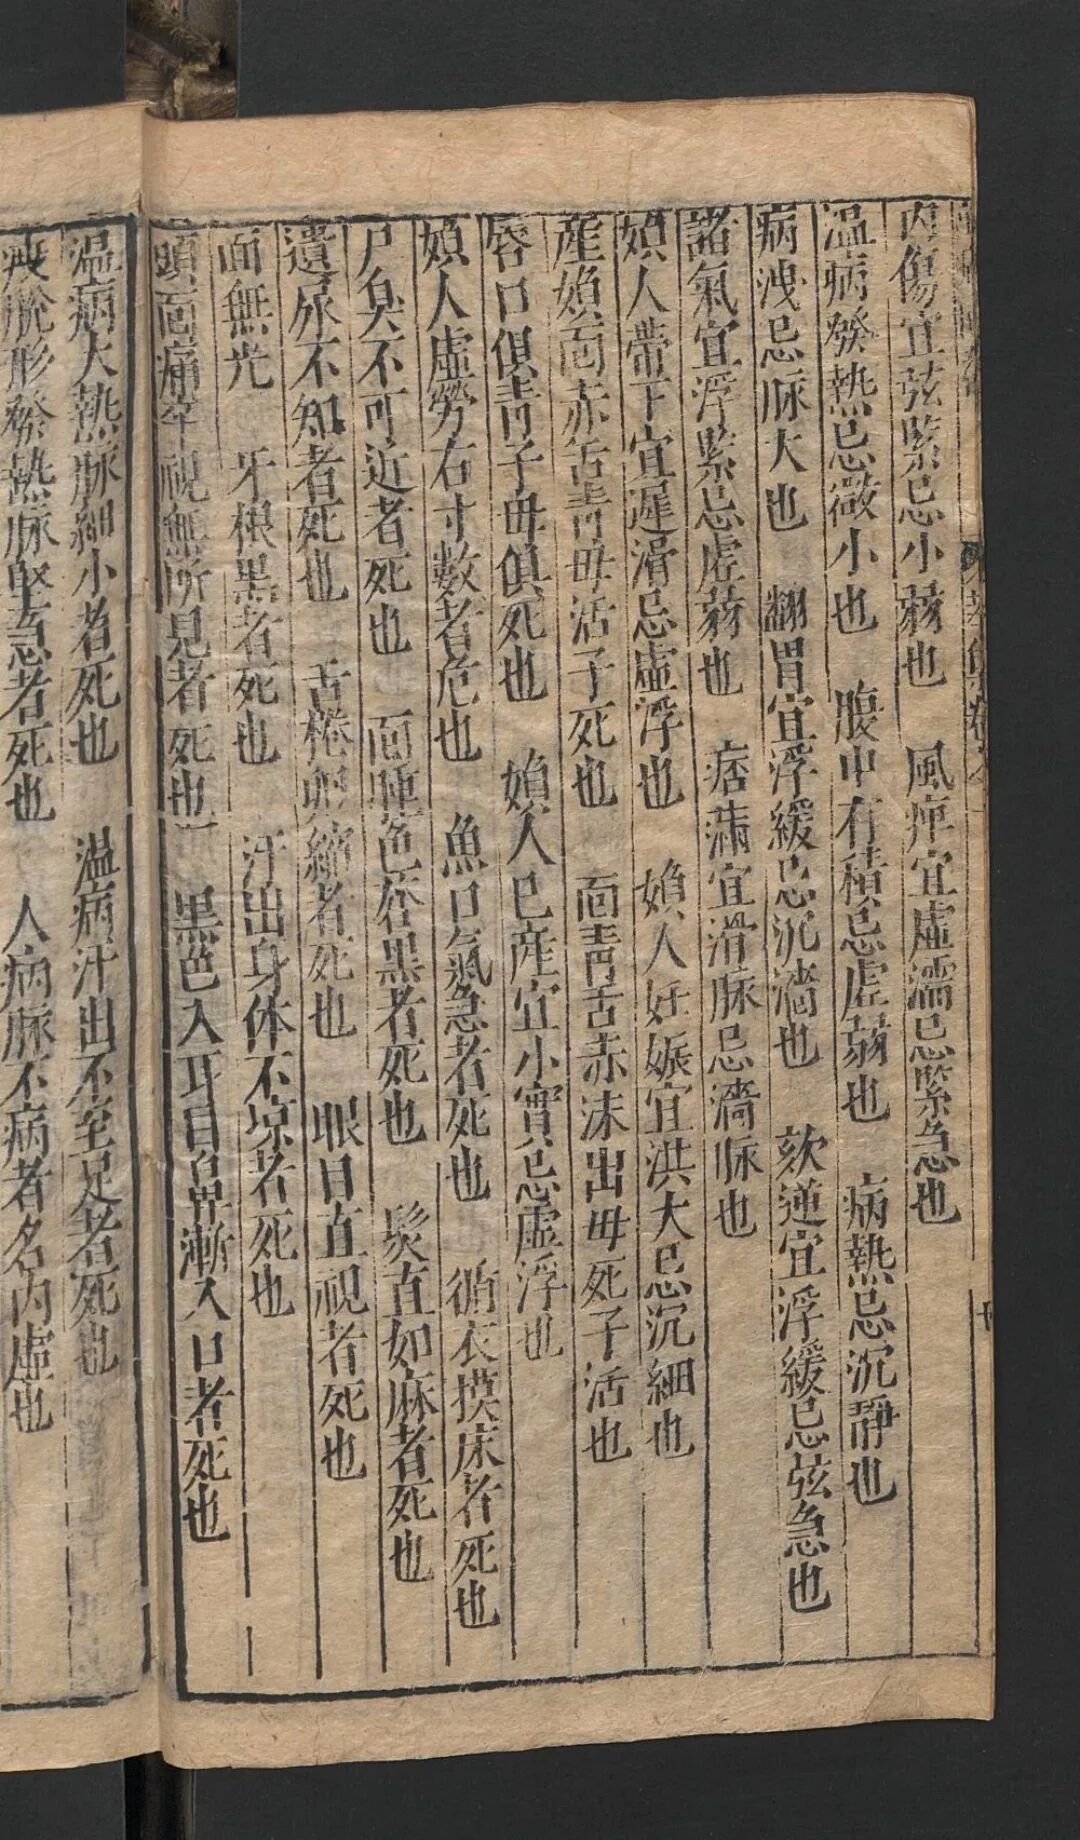 内傷宜弦緊忌小弱也　風痺宜虛濡忌緊急也
温病發熱忌微小也　腹中有積忌虛弱也　病熱忌沉靜也
病洩忌脉大也　翻胃宜浮緩忌沉濇也　欬逆宜浮緩忌弦急也
諸氣宜浮緊忌虛弱也　痞滿宜滑脉忌濇脉也
婦人帶下宜遲滑忌虛浮也　婦人妊娠宜洪大忌沉細也
産婦面赤舌青母活子死也　面青舌赤沫出母死子活也
唇口俱青子母俱死也　婦人已産宜小實忌虛浮也
婦人虛勞右寸數者危也　魚口氣急者死也　循衣摸床者死也
尸臭不可近者死也　面腫色蒼黑者死也　髮直如麻者死也
遺尿不知者死也　舌捲卵縮者死也　眼目直視者死也
面無光　牙根黑者死也　汗出身体不凉者死也
頭面痛卒視無所見者死也　黑色入耳目鼻漸入口者死也
温病大熱脉細小者死也　温病汗出不至足者死也
脫形發熱脉堅急者死也　人病脉不病者名内虛也